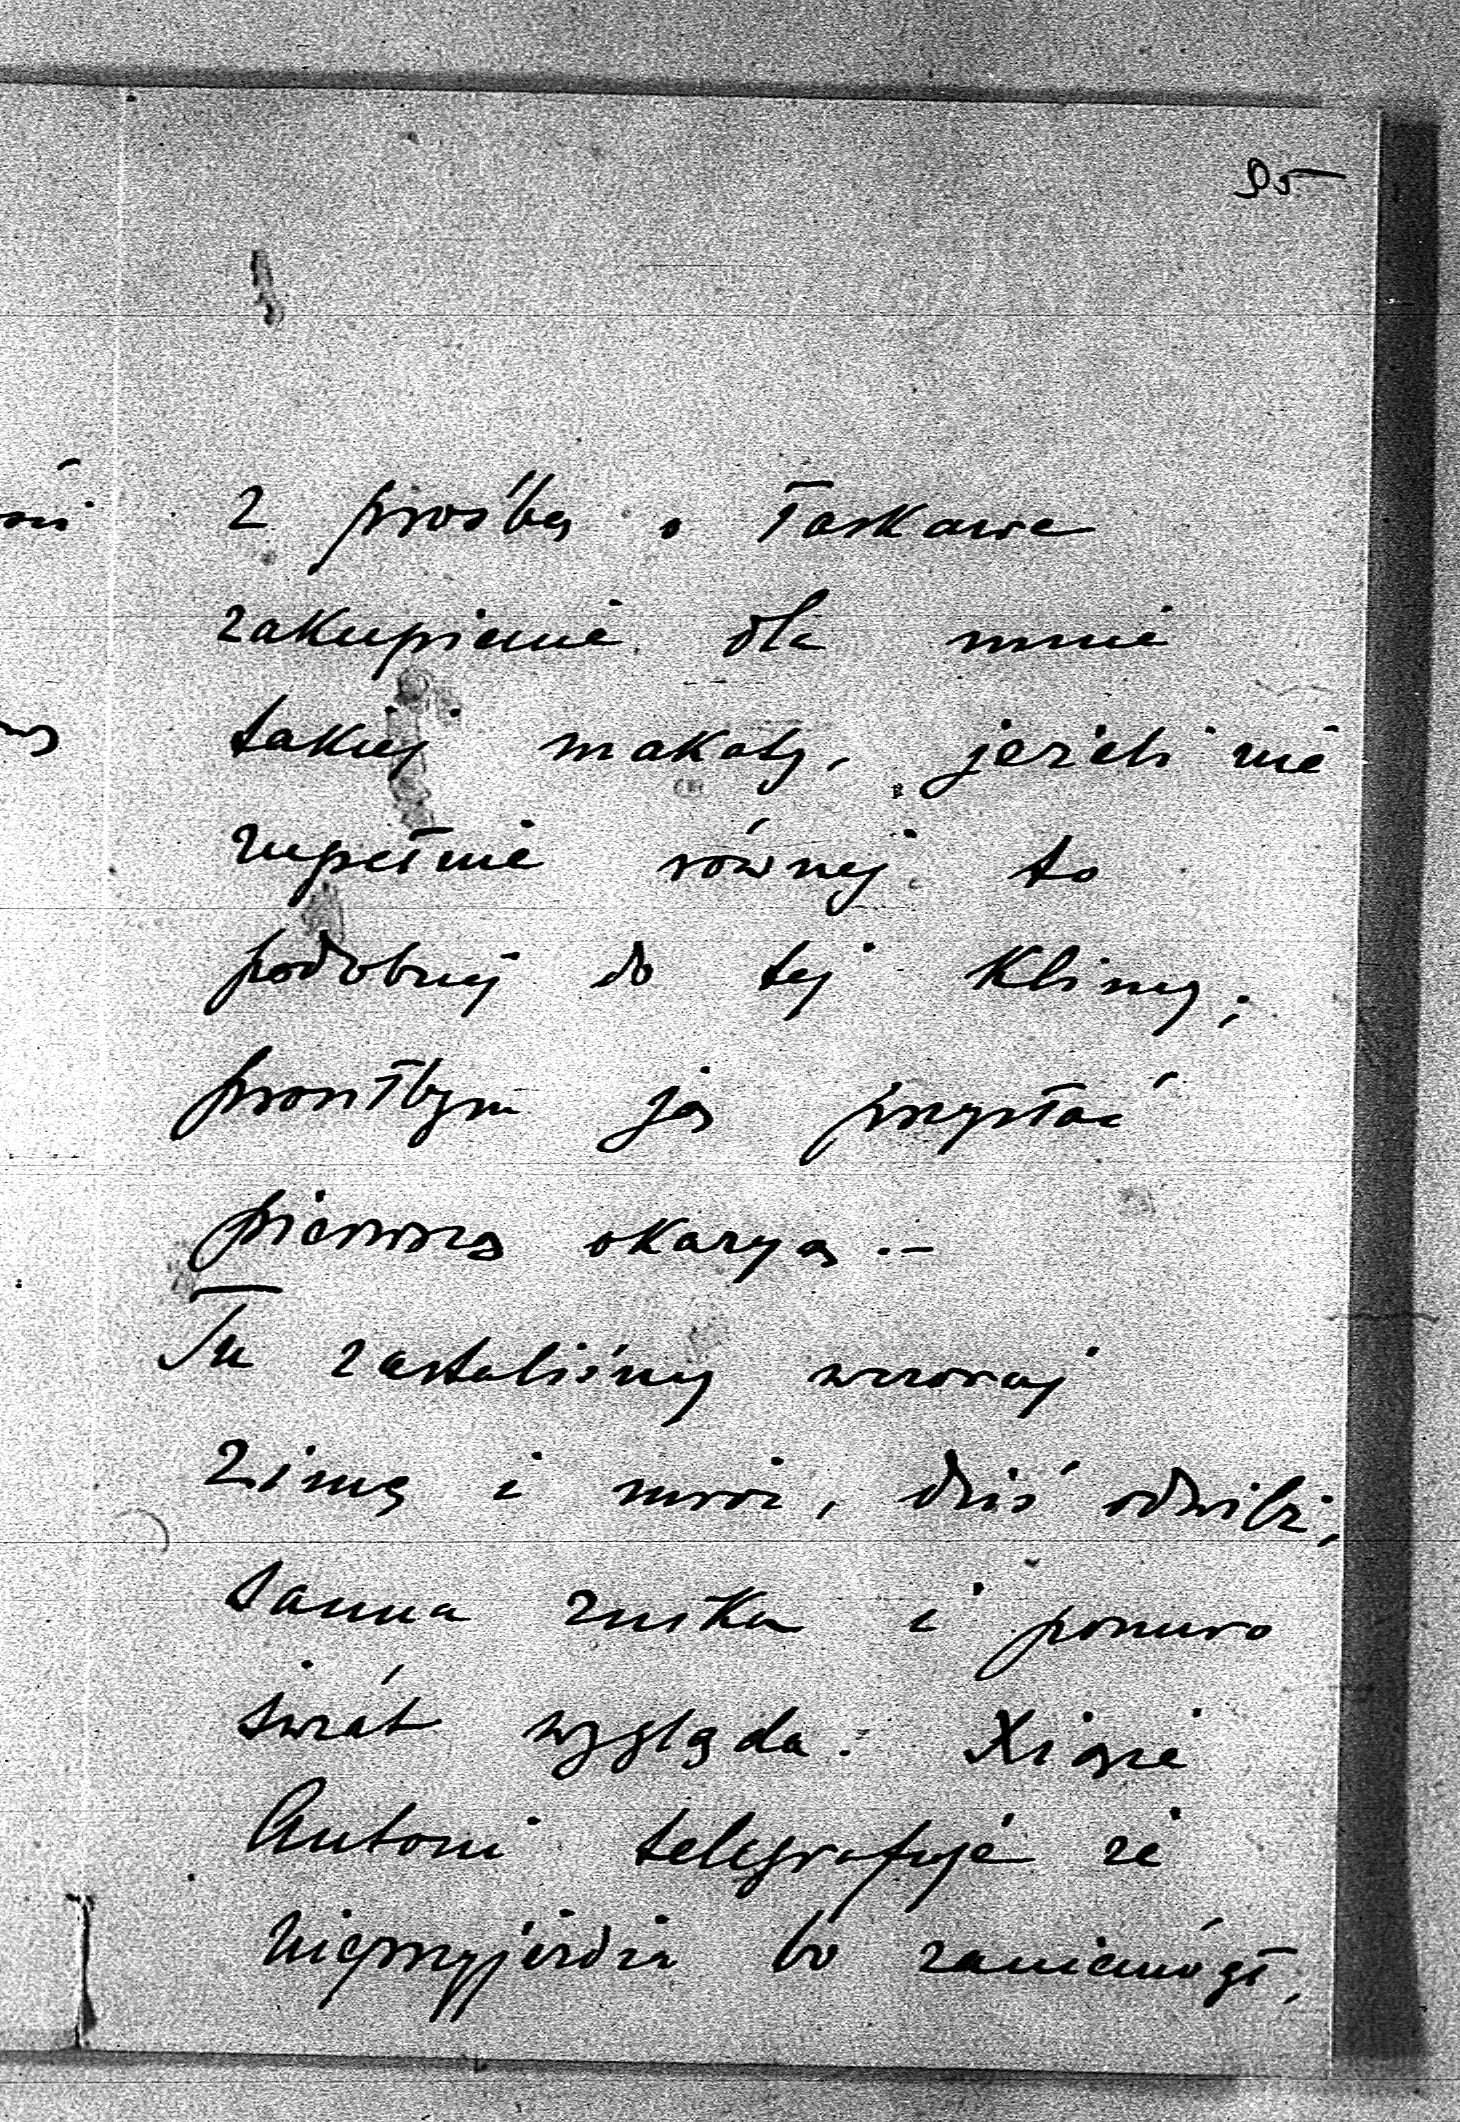 95
z prośbą o łaskawe
zakupienie dla mnie
takiej makaty, jeżeli nie
zupełnie równej to
podobnej do tej Klimy;
prosiłbym ją przysłać
pierwszą okazyą.–
Tu zastaliśmy wczoraj
zimę i mróz, dziś odwilż,
sanna znikła i ponuro
świat wygląda. Xiąże
Antoni telegrafuje że
nieprzyjeżdża bo zaniemógł,